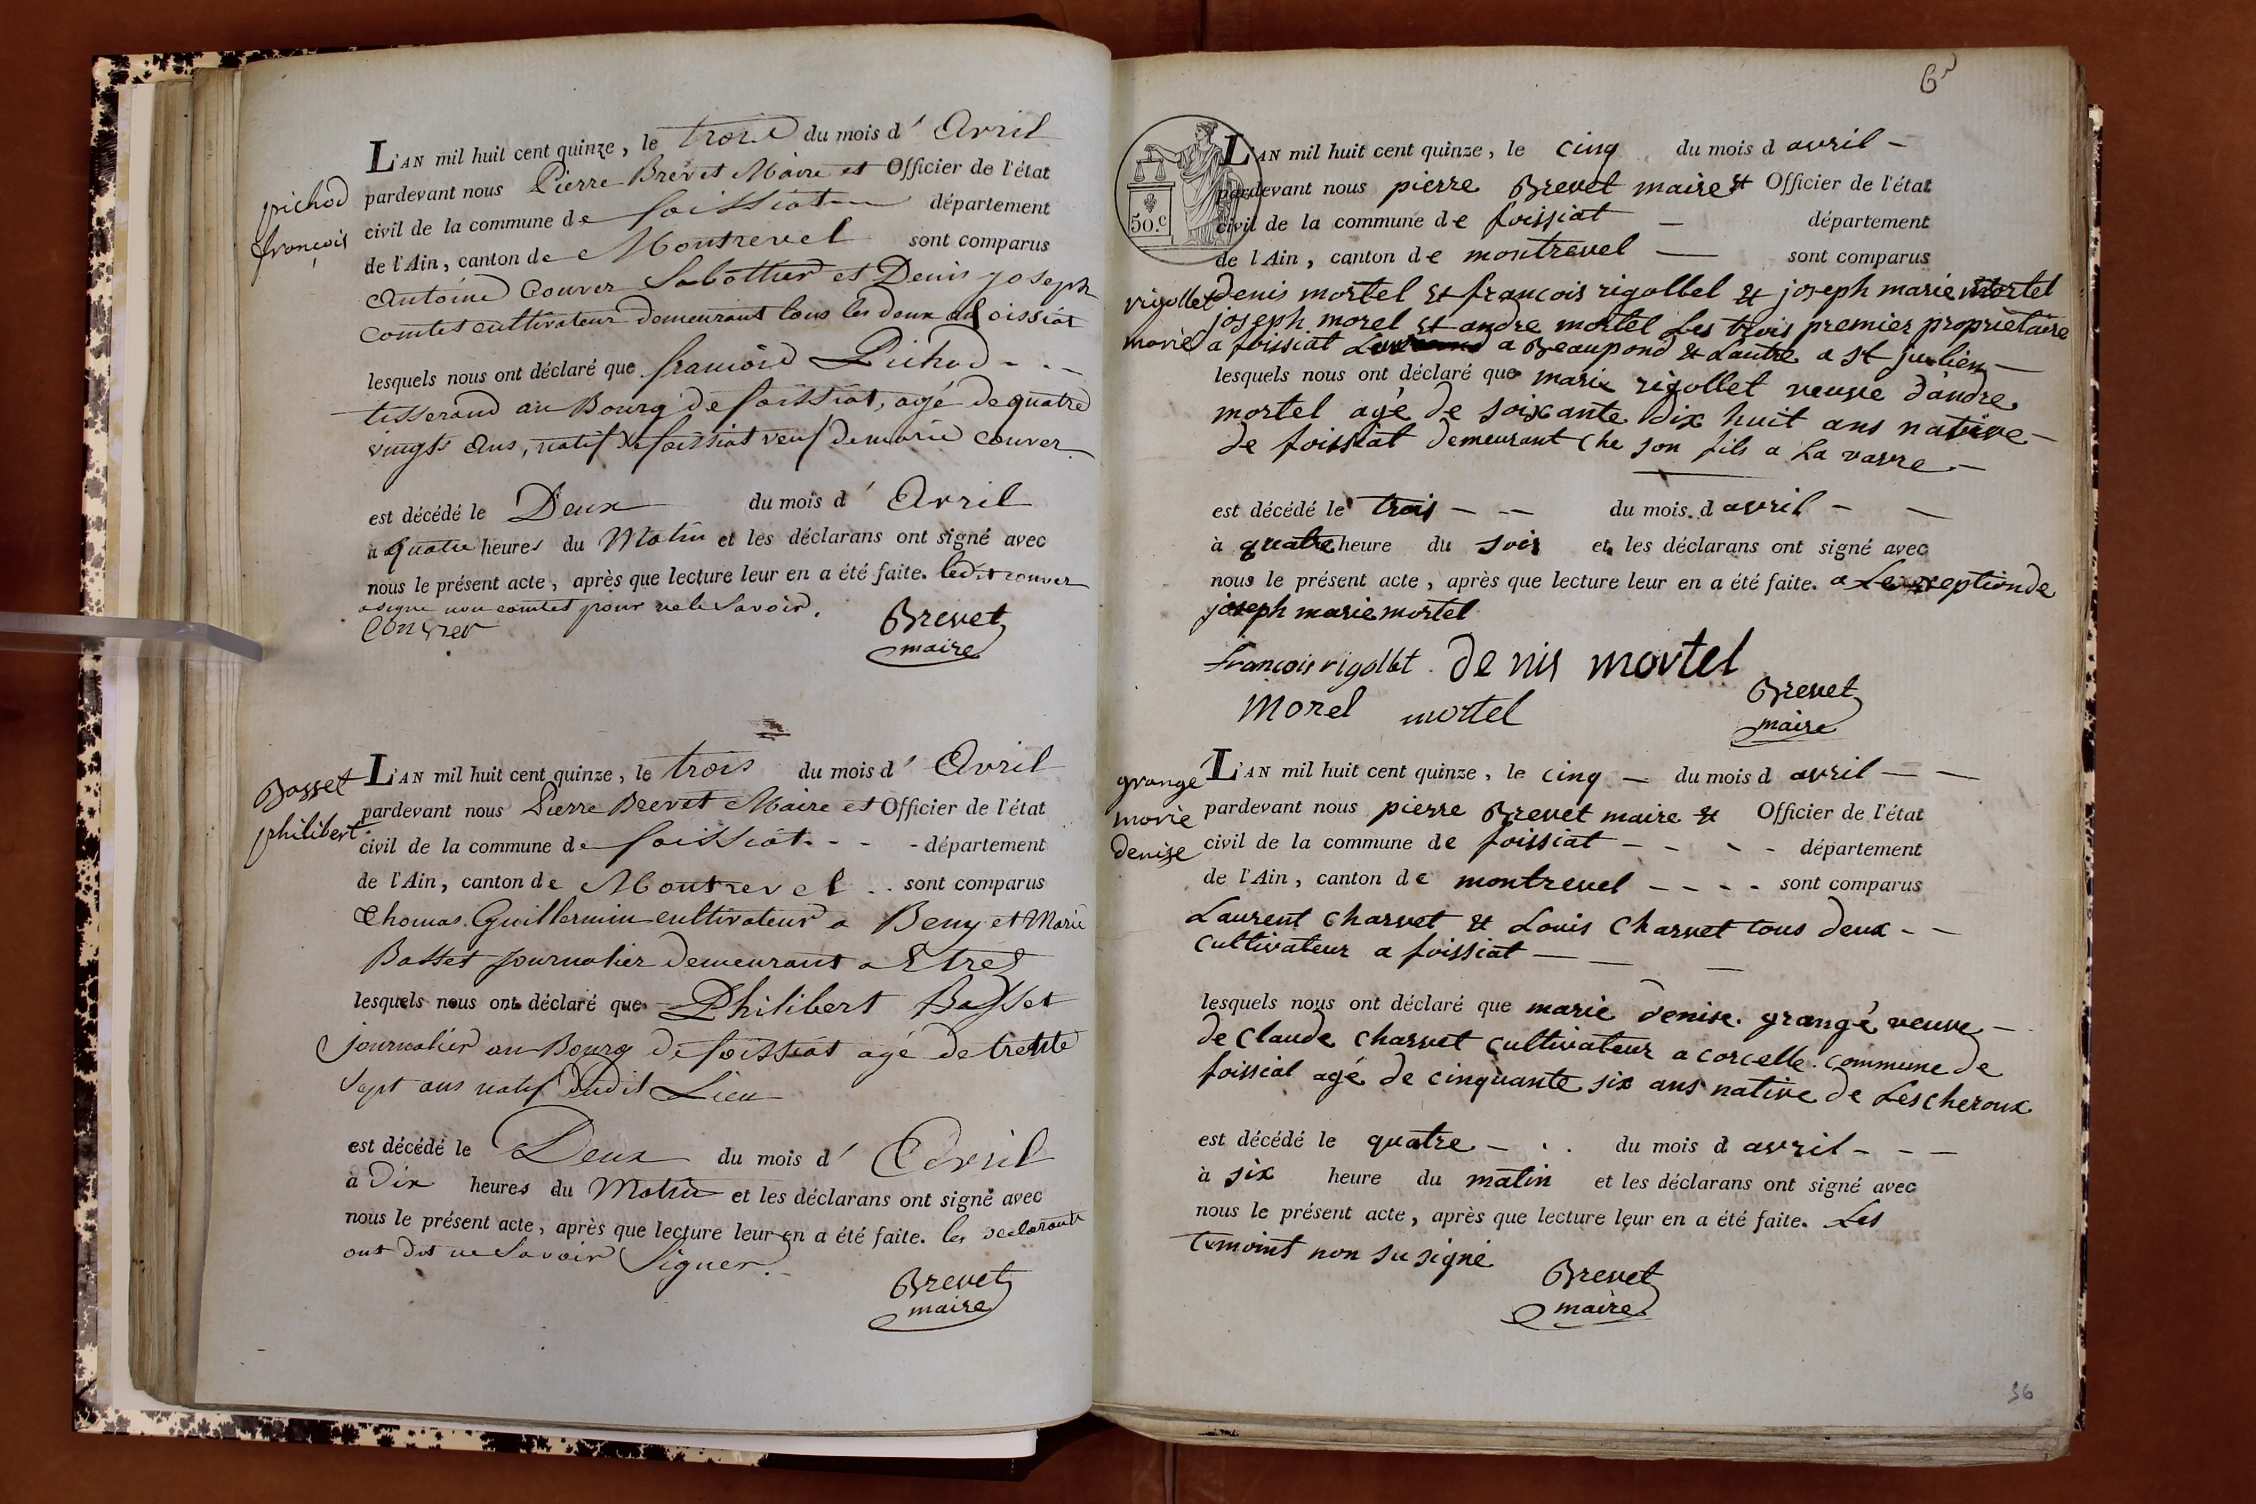 pichod
françois
L'AN mil huit cent quinze, le trois du mois d' Avril
pardevant nous Pierre Brevet Maire et Officier de l'état
civil de la commune de foissiat département
de l'Ain, canton de Montrevel sont comparus
Antoine Couver Sabottier et Denis joseph
comtet cultivateur demeurant tous les deux a foissiat
lesquels nous ont déclaré que françois Pichod - . -
tisserand au Bourg de foissiat, agé de quatre
vingts ans, natif de foissiat veuf de marie couver
est décédé le Deux du mois d' Avril
à quatre heures du Matin et les déclarans ont signé avec
nous le présent acte, après que lecture leur en a été faite. ledit couver
a signé non comtet pour ne le Savoir.
Couver
Brevet
maire
Basset
philibert
L'AN mil huit cent quinze, le trois du mois d' Avril
pardevant nous Pierre Brevet Maire et Officier de l'état
civil de la commune de foissiat - - - département
de l'Ain, canton de Montrevel . . sont comparus
Thomas Guillermin cultivateur a Beny et Marie
Basset journalier demeurant a Etrez
lesquels nous ont déclaré que Philibert Basset
journalier au Bourg de foissiat agé de trente
Sept ans natif dudit Lieu
est décédé le Deux du mois d' Avril
à Dix heures du Matin et les déclarans ont signé avec
nous le présent acte, après que lecture leur en a été faite. les declarants
ont dit ne Savoir Signer.
Brevet
maire
6
50.c
rigollet
marie
L'AN mil huit cent quinze, le cinq du mois d avril -
pardevant nous pierre Brevet maire & Officier de l'état
civil de la commune de foissiat - département
de l'Ain, canton de montrevel - sont comparus
Denis mortel & françois rigollet & joseph marie mortel
joseph morel & andre mortel Les trois premier propriétaire
a foissiat a Beaupond & Lautre a st julien -
lesquels nous ont déclaré que marie rigollet veuve d'andre
mortel agé de soixante dix huit ans native -
de foissiat demeurant che son fils a La vavre -
est décédé le trois - - du mois d avril - -
à quatre heure du soir et les déclarans ont signé avec
nous le présent acte, après que lecture leur en a été faite. a Lexception de
joseph marie mortel
françois rigollet denis mortel
Morel mortel
Brevet
maire
grangé
marie
denise
L'AN mil huit cent quinze, le cinq - du mois d avril - -
pardevant nous pierre Brevet maire & Officier de l'état
civil de la commune de foissiat - - - - département
de l'Ain, canton de montrevel - - - - sont comparus
Laurent charvet & Louis charvet tous deux - -
cultivateur a foissiat - - -
lesquels nous ont déclaré que marie denise grangé veuve -
de claude charvet cultivateur a corcelle commune de
foissiat agé de cinquante six ans native de Lescheroux
est décédé le quatre - . . du mois d avril - - -
à six heure du matin et les déclarans ont signé avec
nous le présent acte, après que lecture leur en a été faite. Les
temoint non su signé
Brevet
maire
36